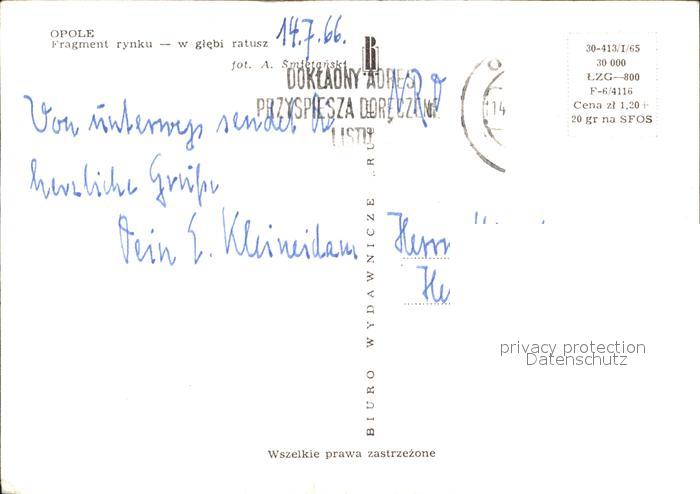 OPOLE
Fragment rynku — w głębi ratusz
fot. A. Śmietański
14.7.66.
DOKŁADNY ADRES
PRZYSPIESZA DORĘCZENIE
LISTU
NRD
14
30-413/I/65
30 000
ŁZG—800
F-6/4116
Cena zł 1,20 +
20 gr na SFOS
Von unterwegs sendet Dir
herzliche Grüße
Dein E. Kleineidam
Herrn
He
BIURO WYDAWNICZE „RUCH"
privacy protection
Datenschutz
Wszelkie prawa zastrzeżone